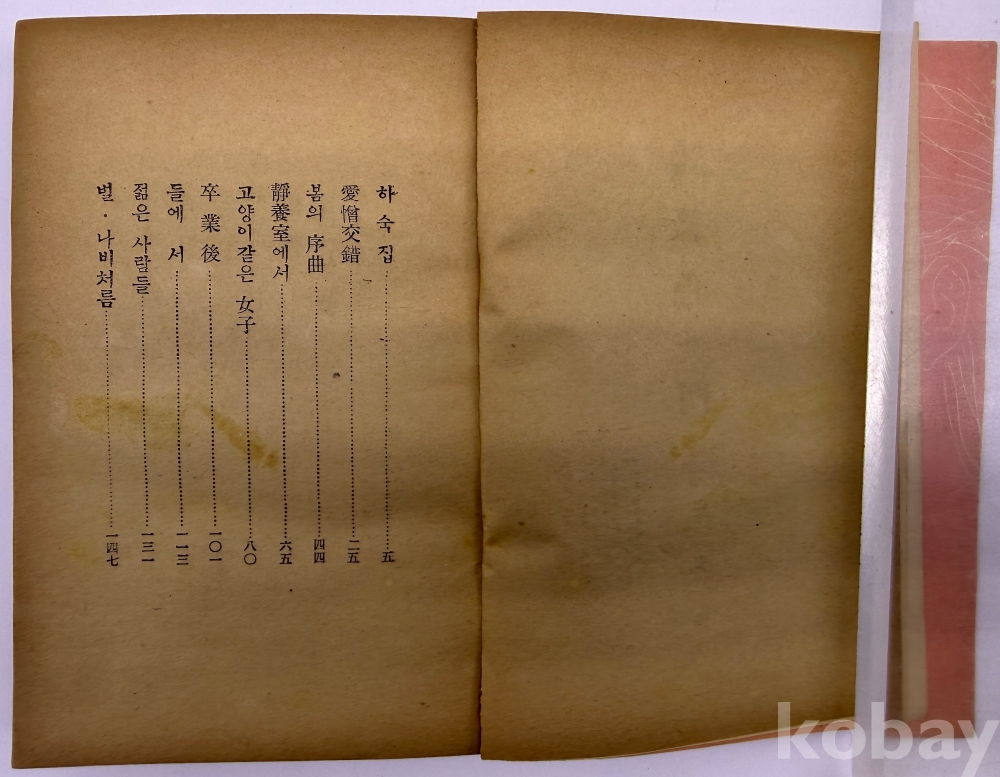 하숙집……五
愛憎交錯……二五
봄의 序曲……四四
靜養室에서……六五
고양이같은 女子……八〇
卒業後……一〇一
들에 서……一一三
젊은 사람들……一三一
벌·나비처름……一四七
kobay